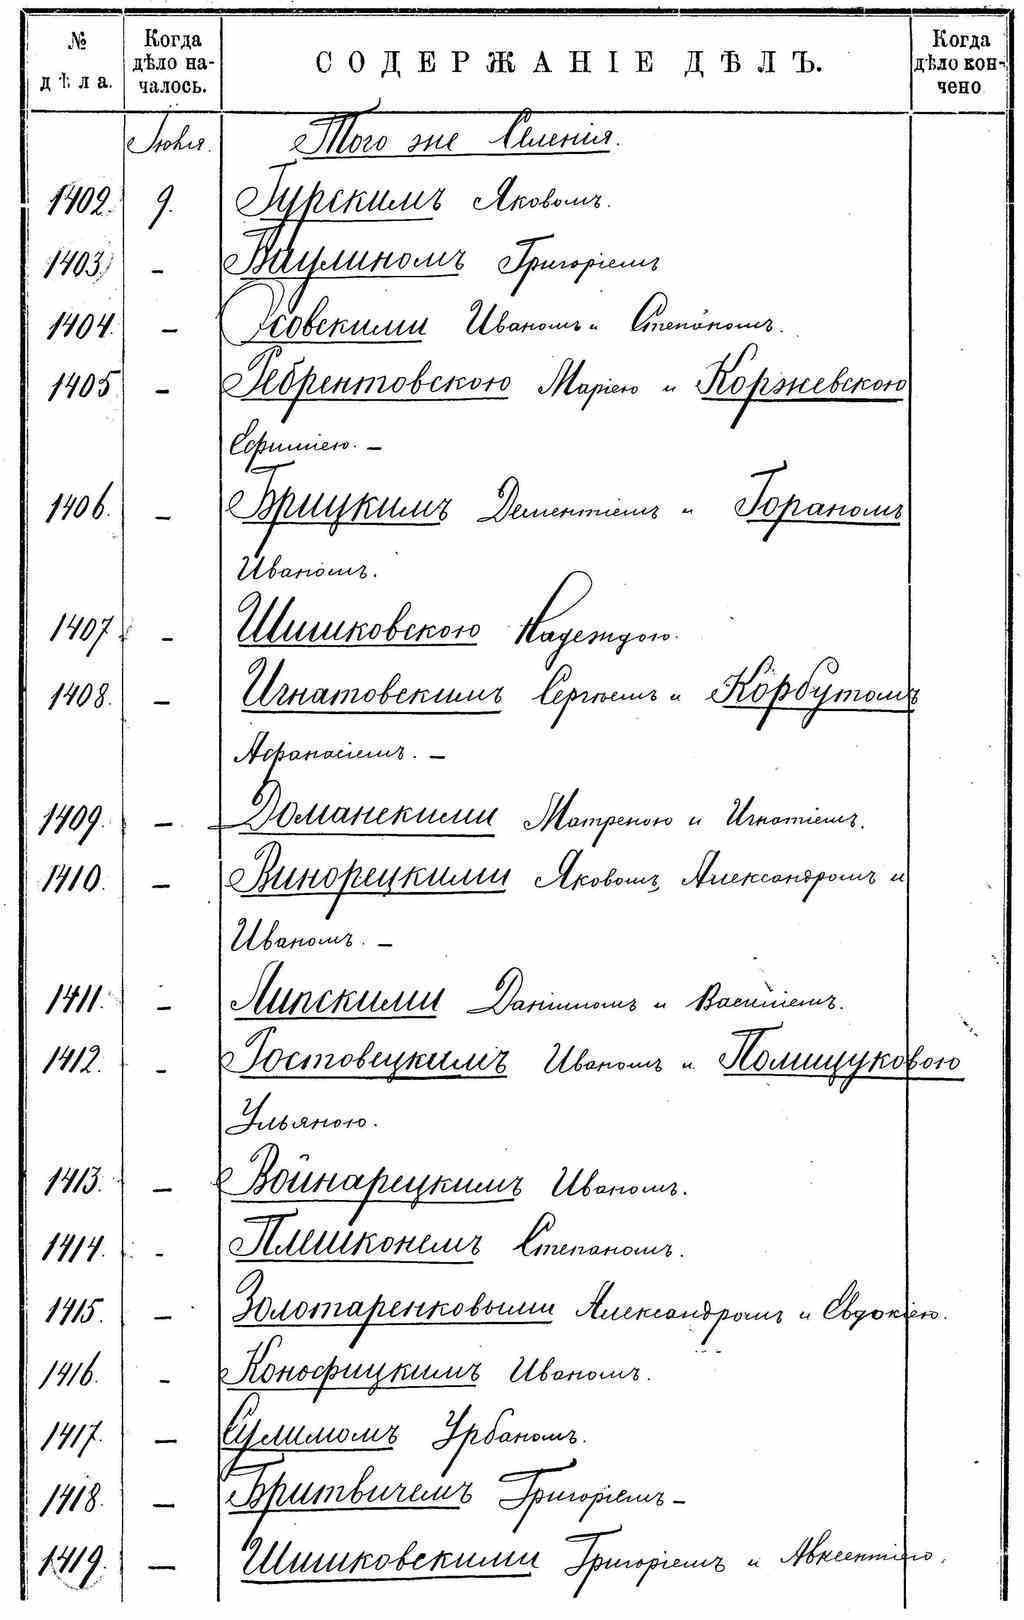 № дѣла.
Когда дѣло началось.
СОДЕРЖАНІЕ ДѢЛЪ.
Когда дѣло кончено
Іюня. Того же Селенія.
1402. 9. Гурскимъ Яковомъ.
1403 – Ваулиномъ Григоріемъ
1404. – Осовскими Иваномъ и Степаномъ.
1405 – Ребрентовскою Маріею и Коржевскою
Ефиміею. –
1406. – Брицкимъ Дементіемъ и Гораномъ
Иваномъ.
1407 – Шишковскою Надеждою.
1408. – Игнатовскимъ Сергѣемъ и Корбутомъ
Афанасіемъ. –
1409. – Доманскими Матреною и Игнатіемъ.
1410. – Винорецкими Яковомъ, Александромъ и
Иваномъ. –
1411. – Липскими Даніиломъ и Василіемъ.
1412. – Ростовецкимъ Иваномъ и Помищуковою
Ульяною.
1413. – Войнарецкимъ Иваномъ.
1414. – Плешконемъ Степаномъ.
1415. – Золотаренковыми Александромъ и Евдокіею.
1416. – Конофицкимъ Иваномъ.
1417. – Сулимомъ Урбаномъ.
1418. – Бритвичемъ Григоріемъ –
1419. – Шишковскими Григоріемъ и Авксентіею.